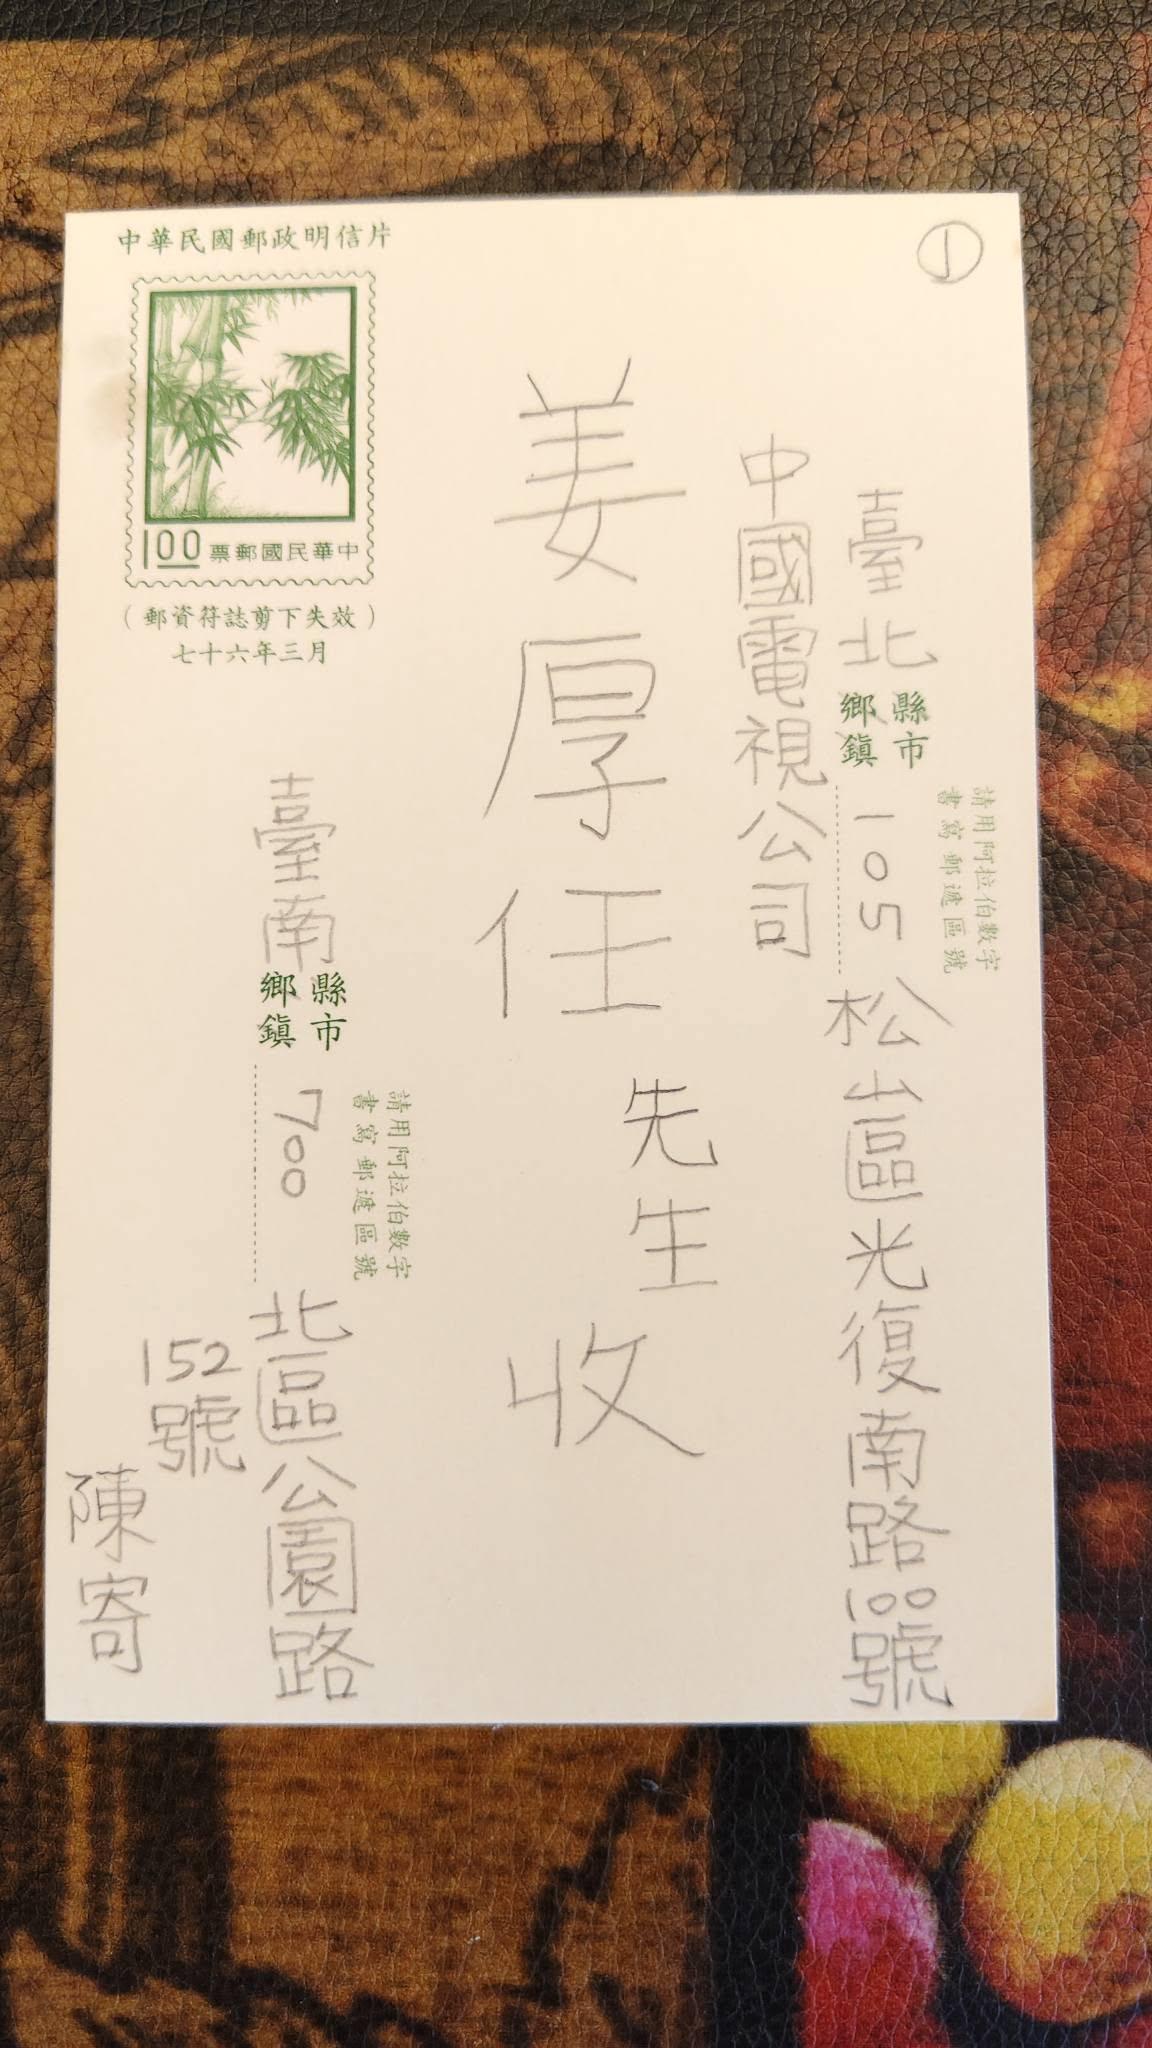 ①
中華民國郵政明信片
1.00 中華民國郵票
（郵資符誌剪下失效）
七十六年三月
請用阿拉伯數字
書寫郵遞區號
臺北縣市鄉鎮105松山區光復南路100號
中國電視公司
姜厚任先生收
請用阿拉伯數字
書寫郵遞區號
臺南縣市鄉鎮700北區公園路
152號
陳寄